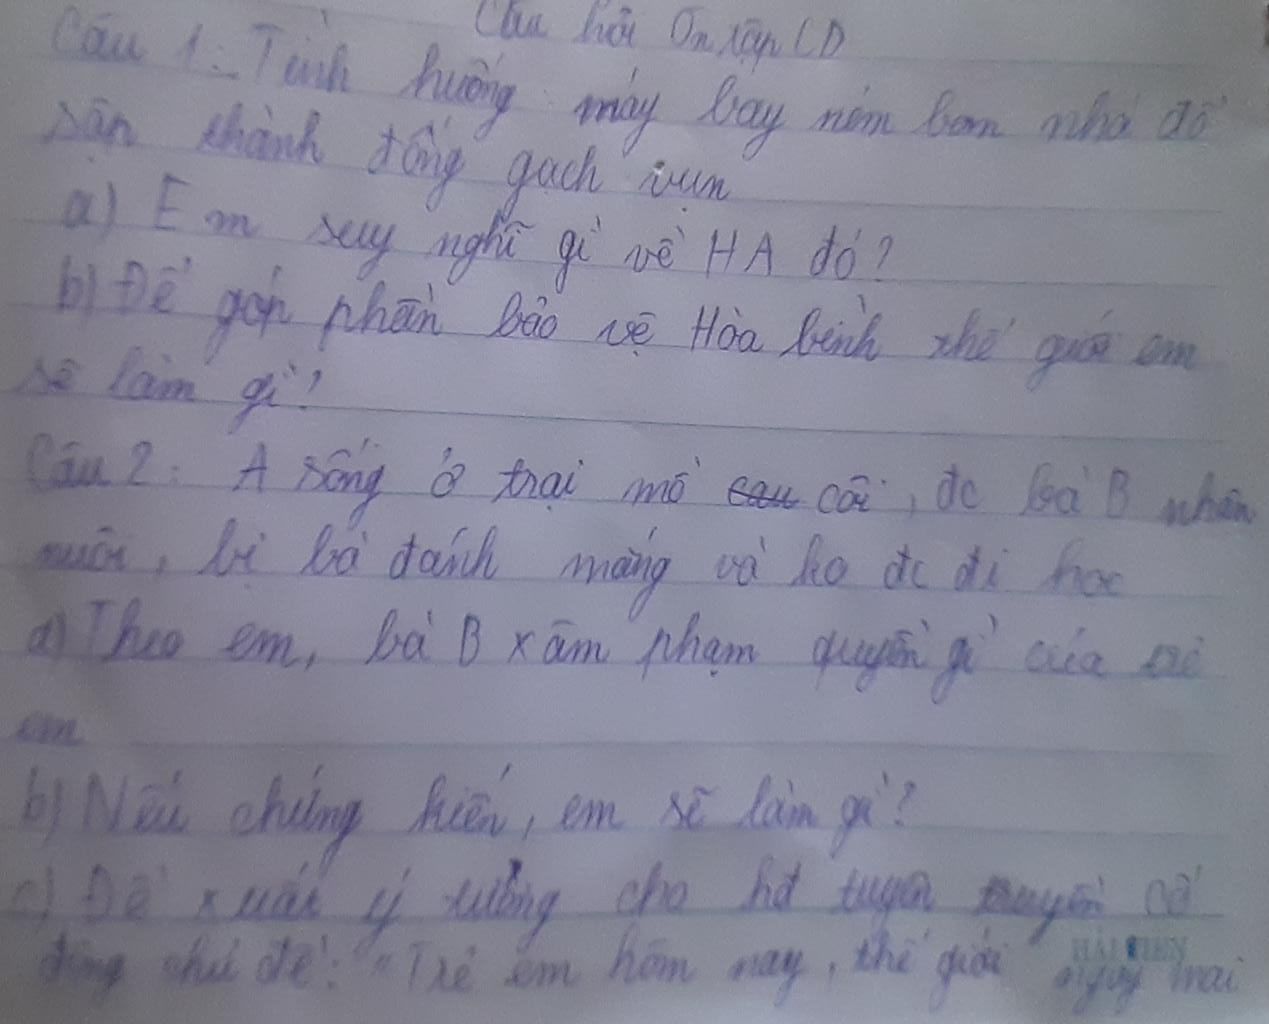 Câu hỏi Ôn tập CD
Câu 1: Tình huống máy bay ném bom nhà đổ
sân thành đống gạch vụn
a) Em suy nghĩ gì về HA đó?
b) Để góp phần bảo vệ Hòa bình thế giới em
sẽ làm gì?
Câu 2: A sống ở trại mồ côi, đc bà B nhân
nuôi, bị bà đánh máng và ko đc đi học
a) Theo em, bà B xâm phạm quyền gì của trẻ
em
b) Nếu chứng kiến, em sẽ làm gì?
c) Đề xuất ý tưởng cho hđ tuyên truyền cổ
động chủ đề: "Trẻ em hôm nay, thế giới ngày mai
HẢI TIẾN